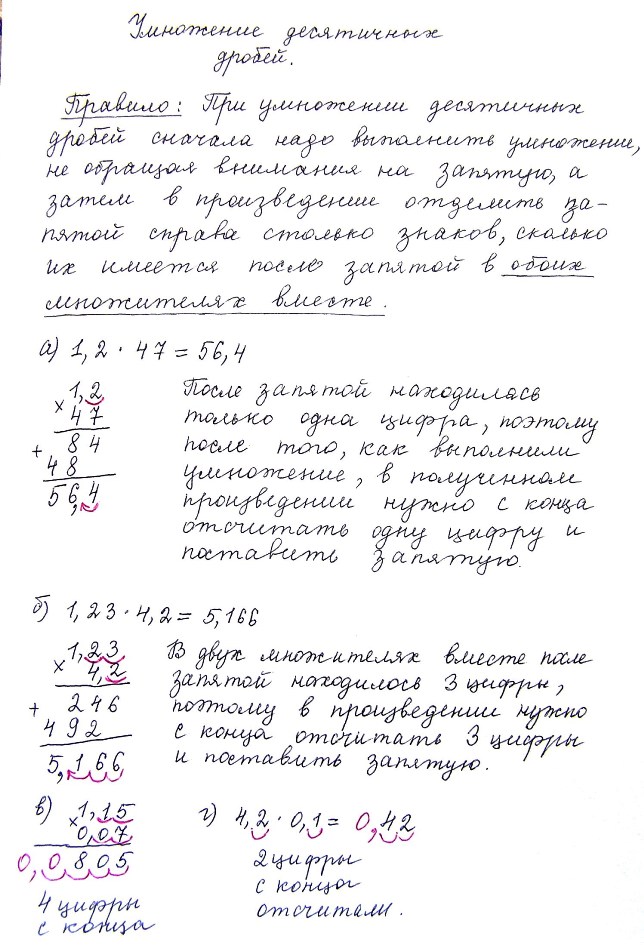 Умножение десятичных
дробей.
Правило: При умножении десятичных
дробей сначала надо выполнить умножение,
не обращая внимания на запятую, а
затем в произведение отделить за-
пятой справа столько знаков, сколько
их имеется после запятой в обоих
множителях вместе.
а) 1,2 · 47 = 56,4
1,2
× 47
84
+ 48
56,4
После запятой находилась
только одна цифра, поэтому
после того, как выполнили
умножение, в полученном
произведении нужно с конца
отсчитать одну цифру и
поставить запятую.
б) 1,23 · 4,2 = 5,166
1,23
× 4,2
+ 246
492
5,166
В двух множителях вместе после
запятой находилось 3 цифры,
поэтому в произведении нужно
с конца отсчитать 3 цифры
и поставить запятую.
в) × 1,15
0,07
0,0805
4 цифры
с конца
г) 4,2 · 0,1 = 0,42
2 цифры
с конца
отсчитали.